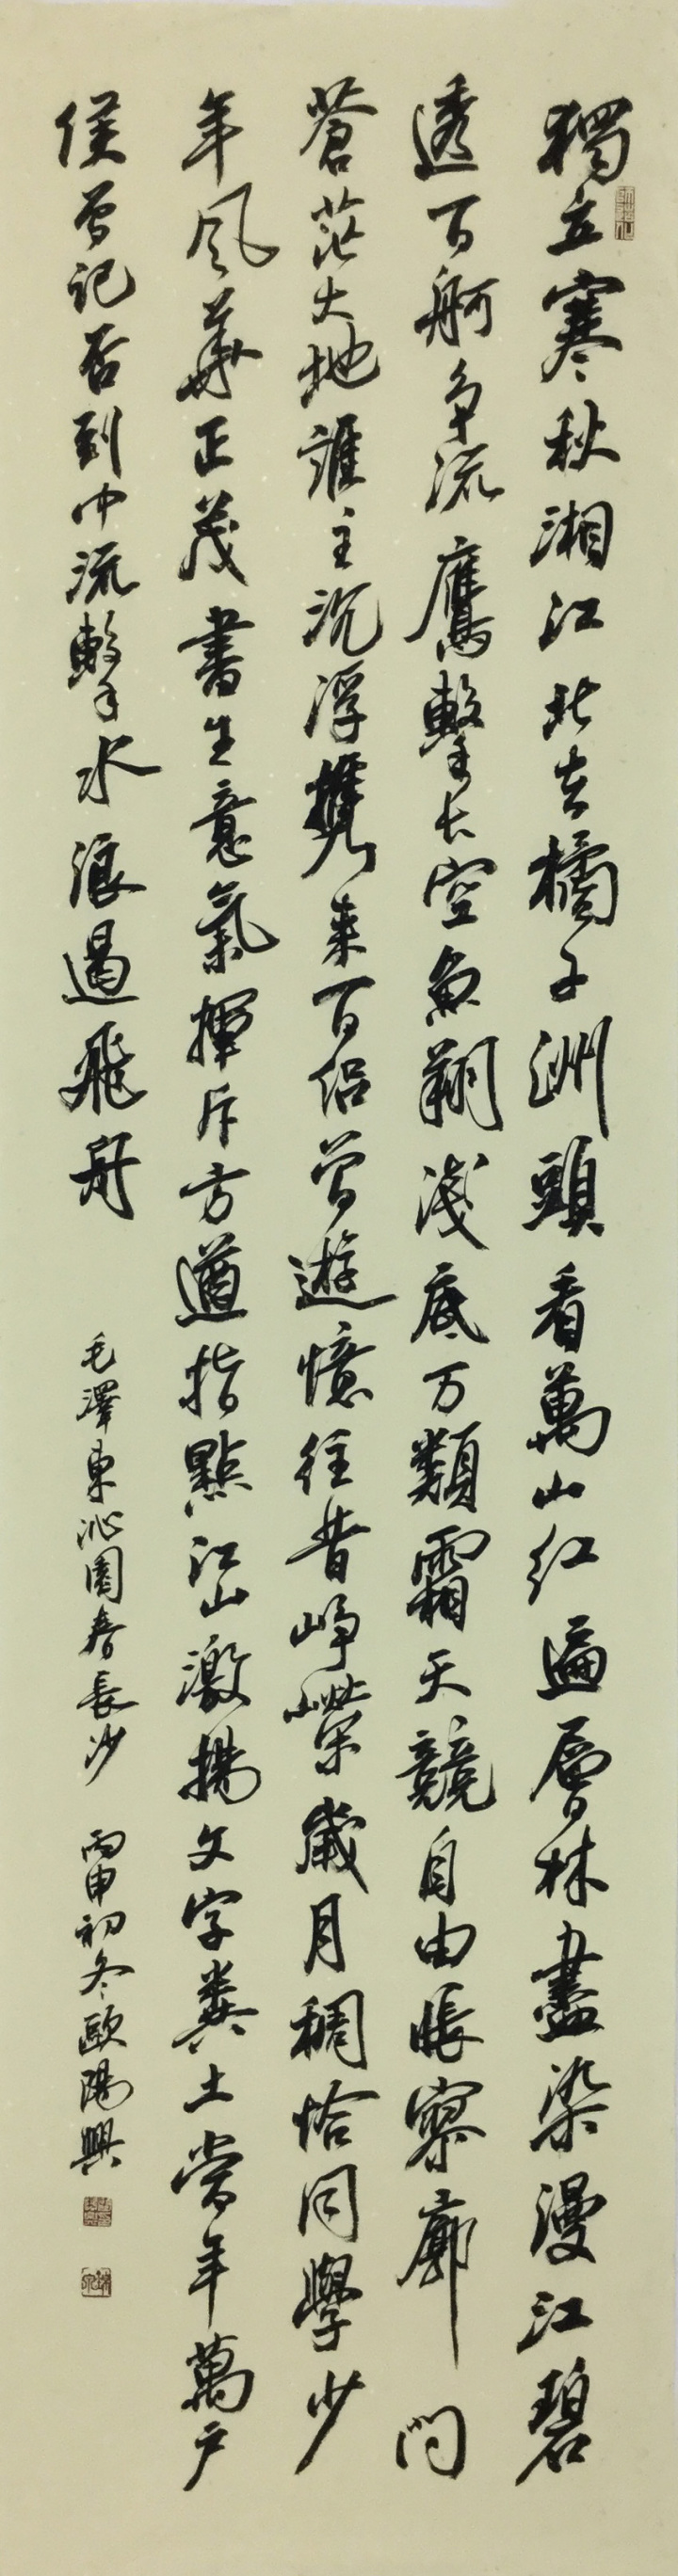 獨立寒秋湘江北去橘子洲頭看萬山红遍層林盡染漫江碧
透百舸争流鷹擊长空魚翔淺底万類霜天競自由悵寥廓問
蒼茫大地誰主沉浮攜来百侣曾遊憶往昔崢嶸歲月稠恰同學少
年風華正茂書生意氣揮斥方遒指點江山激揚文字糞土當年萬户
侯曾記否到中流擊水浪遏飛舟
毛澤東沁園春長沙 丙申初冬歐陽興